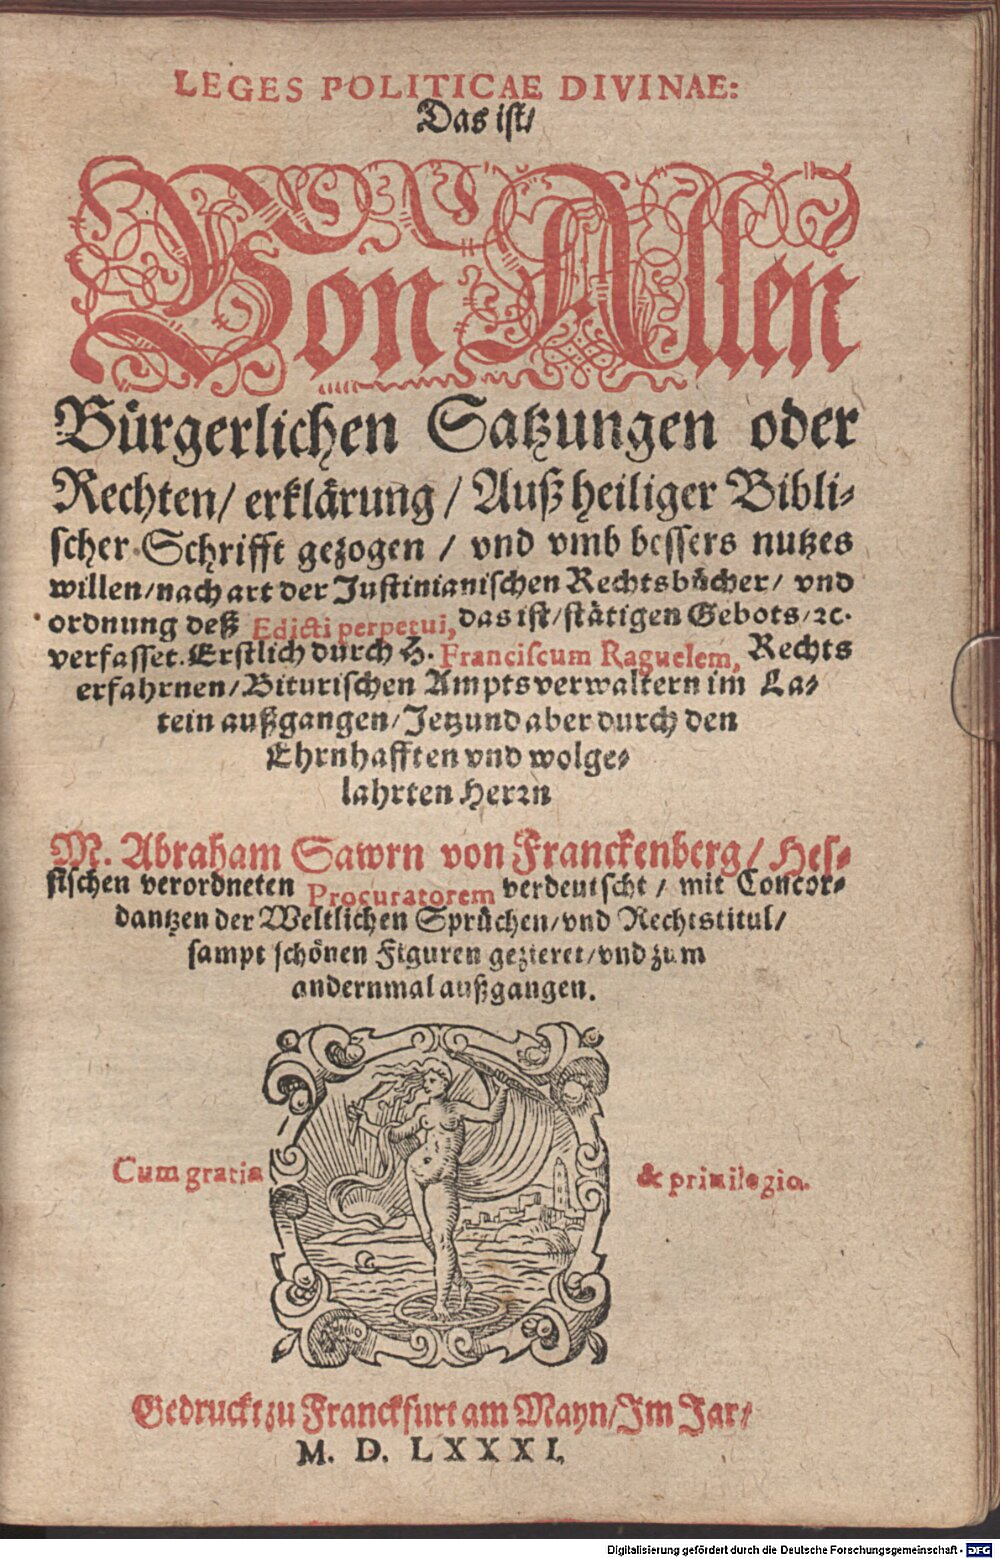 LEGES POLITICAE DIVINAE:
Das ist/
Von Allen
Bürgerlichen Satzungen oder
Rechten/ erklärung/ Auß heiliger Bibli-
scher Schrifft gezogen / vnd vmb bessers nutzes
willen/nach art der Justinianischen Rechtsbücher/ vnd
ordnung deß Edicti perpetui, das ist/stätigen Gebots/ꝛc.
verfasset. Erstlich durch H. Franciscum Raguelem, Rechts
erfahrnen/Biturischen Amptsverwaltern im La-
tein außgangen/Jetzund aber durch den
Ehrnhafften vnd wolge-
lahrten Herrn
M. Abraham Sawrn von Franckenberg/ Hes-
sischen verordneten Procuratorem verdeutscht/ mit Concor-
dantzen der Weltlichen Sprüchen/vnd Rechtstitul/
sampt schönen Figuren gezieret/vnd zum
andernmal außgangen.
Cum gratia & priuilegio.
Gedruckt zu Franckfurt am Mayn/Im Jar/
M. D. LXXXI.
Digitalisierung gefördert durch die Deutsche Forschungsgemeinschaft - DFG